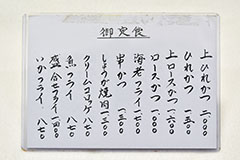 御定食
上ひれかつ 二、〇〇〇
ひれかつ 一、五〇〇
上ロースかつ 一、六〇〇
ロースかつ 一、二〇〇
海老フライ 一、七五〇
串かつ 一、三五〇
しょうが焼肉 一、三〇〇
クリームコロッケ 八七〇
魚フライ 八七〇
盛合せフライ 一、三〇〇
いかフライ 八七〇